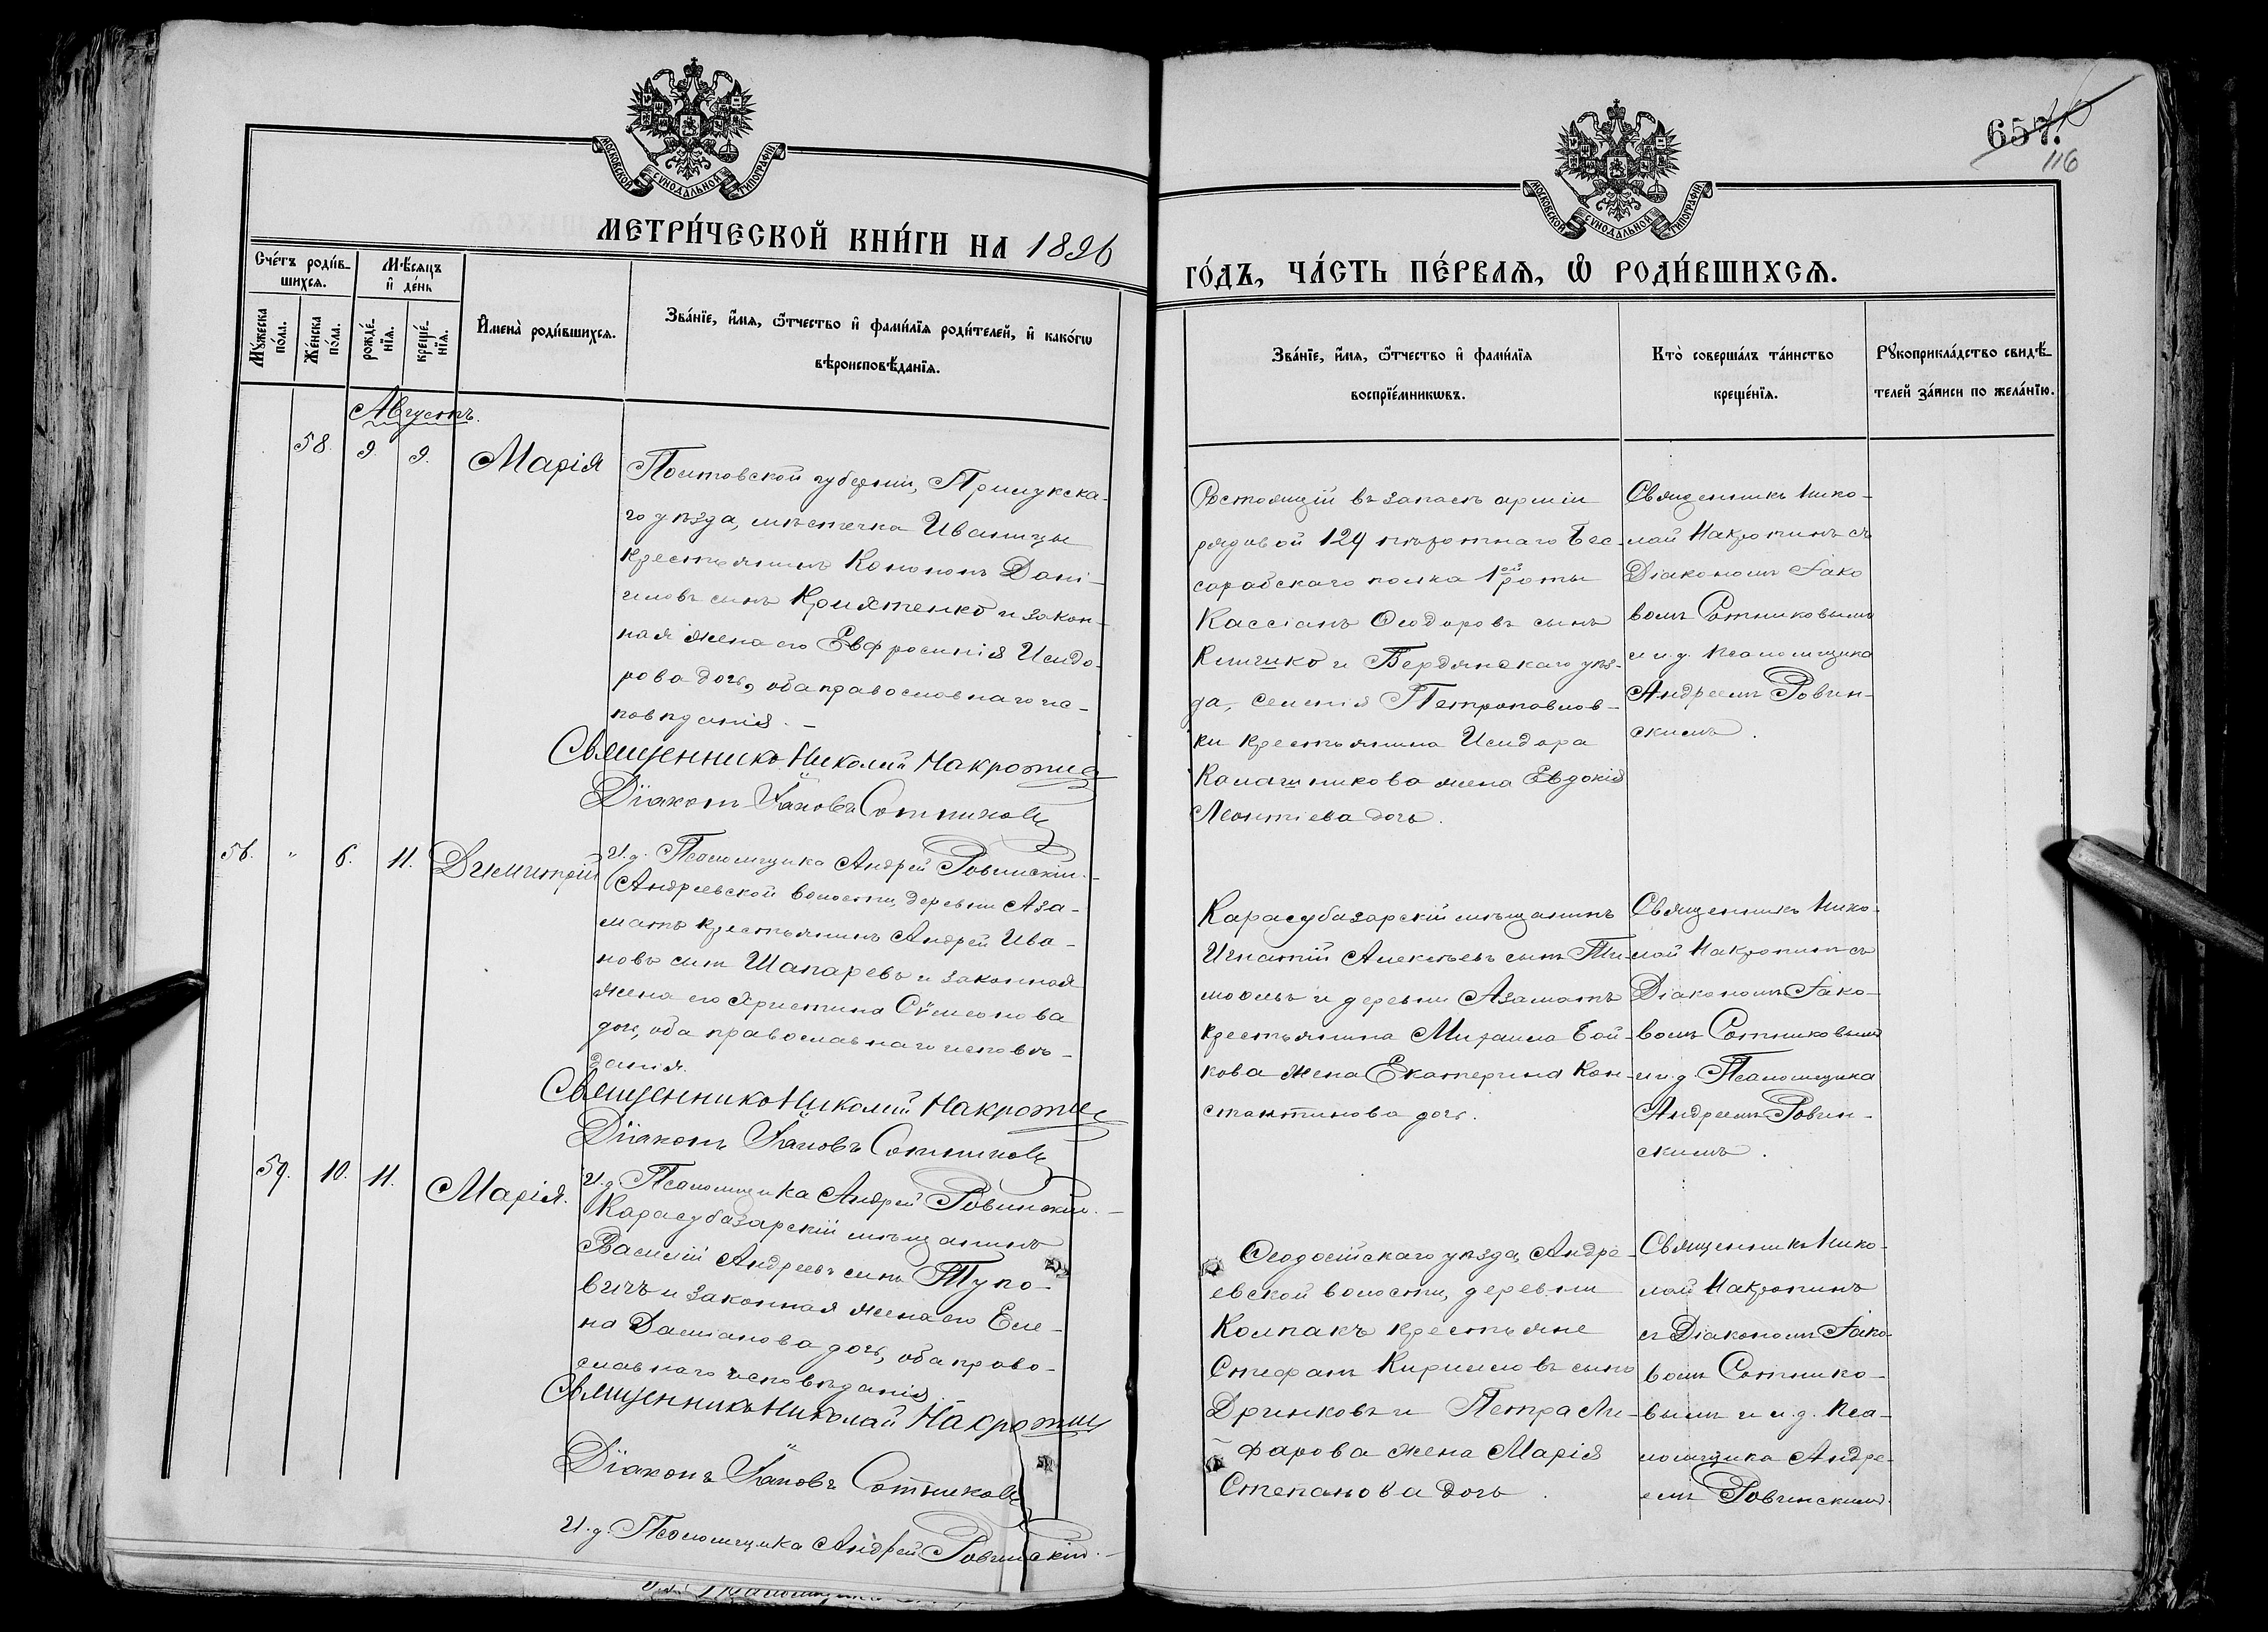 МОСКОВСКОЙ СѴНОДАЛЬНОЙ ТИПОГРАФІИ
МЕТРИ́ЧЕСКОЙ КНИ́ГИ НА 1896
Сче́тъ роди́в-
шихсѧ.
Мѣ́сѧцъ
и҆ де́нь
Мꙋ́жеска
по́ла.
Же́нска
по́ла.
рожде́-
нїѧ.
креще́-
нїѧ.
И҆мена̀ роди́вшихсѧ.
Зва́нїе, и҆́мѧ, ѻ҆́тчество и҆ фами́лїѧ роди́телей, и҆ како́гѡ
вѣроисповѣ́данїѧ.
Августъ.
58. 9. 9. Марія
Полтавской губерніи, Прилукска-
го уѣзда, мѣстечка Иваницы
крестьянинъ Кононъ Дані-
иловъ сынъ и закон-
ная жена его Евфросинія Исидо-
рова дочь, оба православнаго ис-
повѣданія. -
Священникъ Николай Макротин
Діаконъ Іаковъ Сотниковъ
И. д. Псаломщика Андрей Ровинскій.
56. " 6. 11. Димитрій
Андреевской волости, деревни Аза-
матъ крестьянинъ Андрей Ива-
новъ сынъ Шапаревъ и законная
жена его Христина Сѵмеонова
дочь, оба православнаго исповѣ-
данія.
Священникъ Николай Макротин
Діаконъ Іаковъ Сотниковъ
И. д. Псаломщика Андрей Ровинскій.
59. 10. 11. Марія.
Карасубазарскій мѣщанинъ
Василій Андреевъ сынъ Тупо-
вичъ и законная жена его Еле-
на Даміанова дочь, оба право-
славнаго исповѣданія.
Священникъ Николай Макротин
Діаконъ Іаковъ Сотниковъ
И. д. Псаломщика Андрей Ровинскій.
657.
116
МОСКОВСКОЙ СѴНОДАЛЬНОЙ ТИПОГРАФІИ
ГО́ДЪ, ЧА́СТЬ ПЕ́РВАѦ, Ѡ҆ РОДИ́ВШИХСѦ.
Зва́нїе, и҆́мѧ, ѻ҆́тчество и҆ фами́лїѧ
воспрїе́мникѡвъ.
Кто̀ соверша́лъ та́инство
креще́нїѧ.
Рꙋкоприкла́дство свидѣ́-
телей за́писи по жела́нїю.
Состоящій въ запасѣ арміи
рядовой 124 пѣхотнаго Бес-
сарабскаго полка 1ой роты
Кассіанъ Ѳеодоровъ сынъ
Климко и Бердянскаго уѣз-
да, селенія Петропавлов-
ки крестьянина Исидора
Калашникова жена Евдокія
Леонтіева дочь.
Священникъ Нико-
лай Макротинъ съ
Діакономъ Іако
вомъ Сотниковымъ
и и. д. псаломщика
Андреемъ Ровин-
скимъ.
Карасубазарскій мѣщанинъ
Игнатій Алексѣевъ сынъ Ти-
моѳеевъ и деревни Азаматъ
крестьянина Михаила Бой-
кова жена Екатерина Кон-
стантинова дочь.
Священникъ Нико-
лай Макротинъ съ
Діакономъ Іако-
вомъ Сотниковымъ
и и. д. Псаломщика
Андреемъ Ровин-
скимъ.
Ѳеодосійскаго уѣзда, Андре-
евской волости, деревни
Колпакъ крестьяне
Стефанъ Кирилловъ сынъ
Дринковъ и Петра Ли-
фарова жена Марія
Степанова дочь.
Священникъ Нико-
лай Макротинъ
съ Діакономъ Іако-
вомъ Сотнико-
вымъ и и. д. пса-
ломщика Андре-
емъ Ровинскимъ.